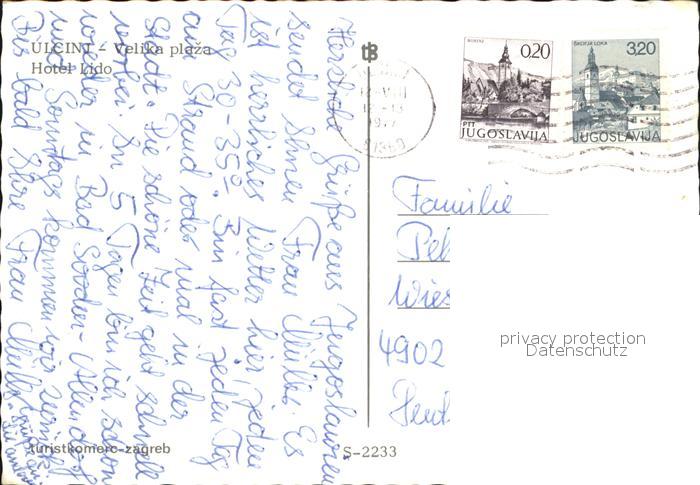 ULCINJ – Velika plaža
Hotel Lido
Herzliche Grüße aus Jugoslawien
sendet Ihnen Frau Müller. Es
ist herrliches Wetter hier, jeden
Tag 30-35°. Bin fast jeden Tag
am Strand oder mal in der
Stadt. Die schöne Zeit geht schnell
vorbei. In 5 Tagen bin ich schon
wieder in Bad Sooden-Allendorf
und Sonntags kommen wir zurück
Bis bald Ihre Frau Müller
turistkomerc-zagreb
S-2233
BOHINJ
0,20
PTT
JUGOSLAVIJA
ŠKOFJA LOKA
3,20
JUGOSLAVIJA
1977
Familie
4902
privacy protection
Datenschutz